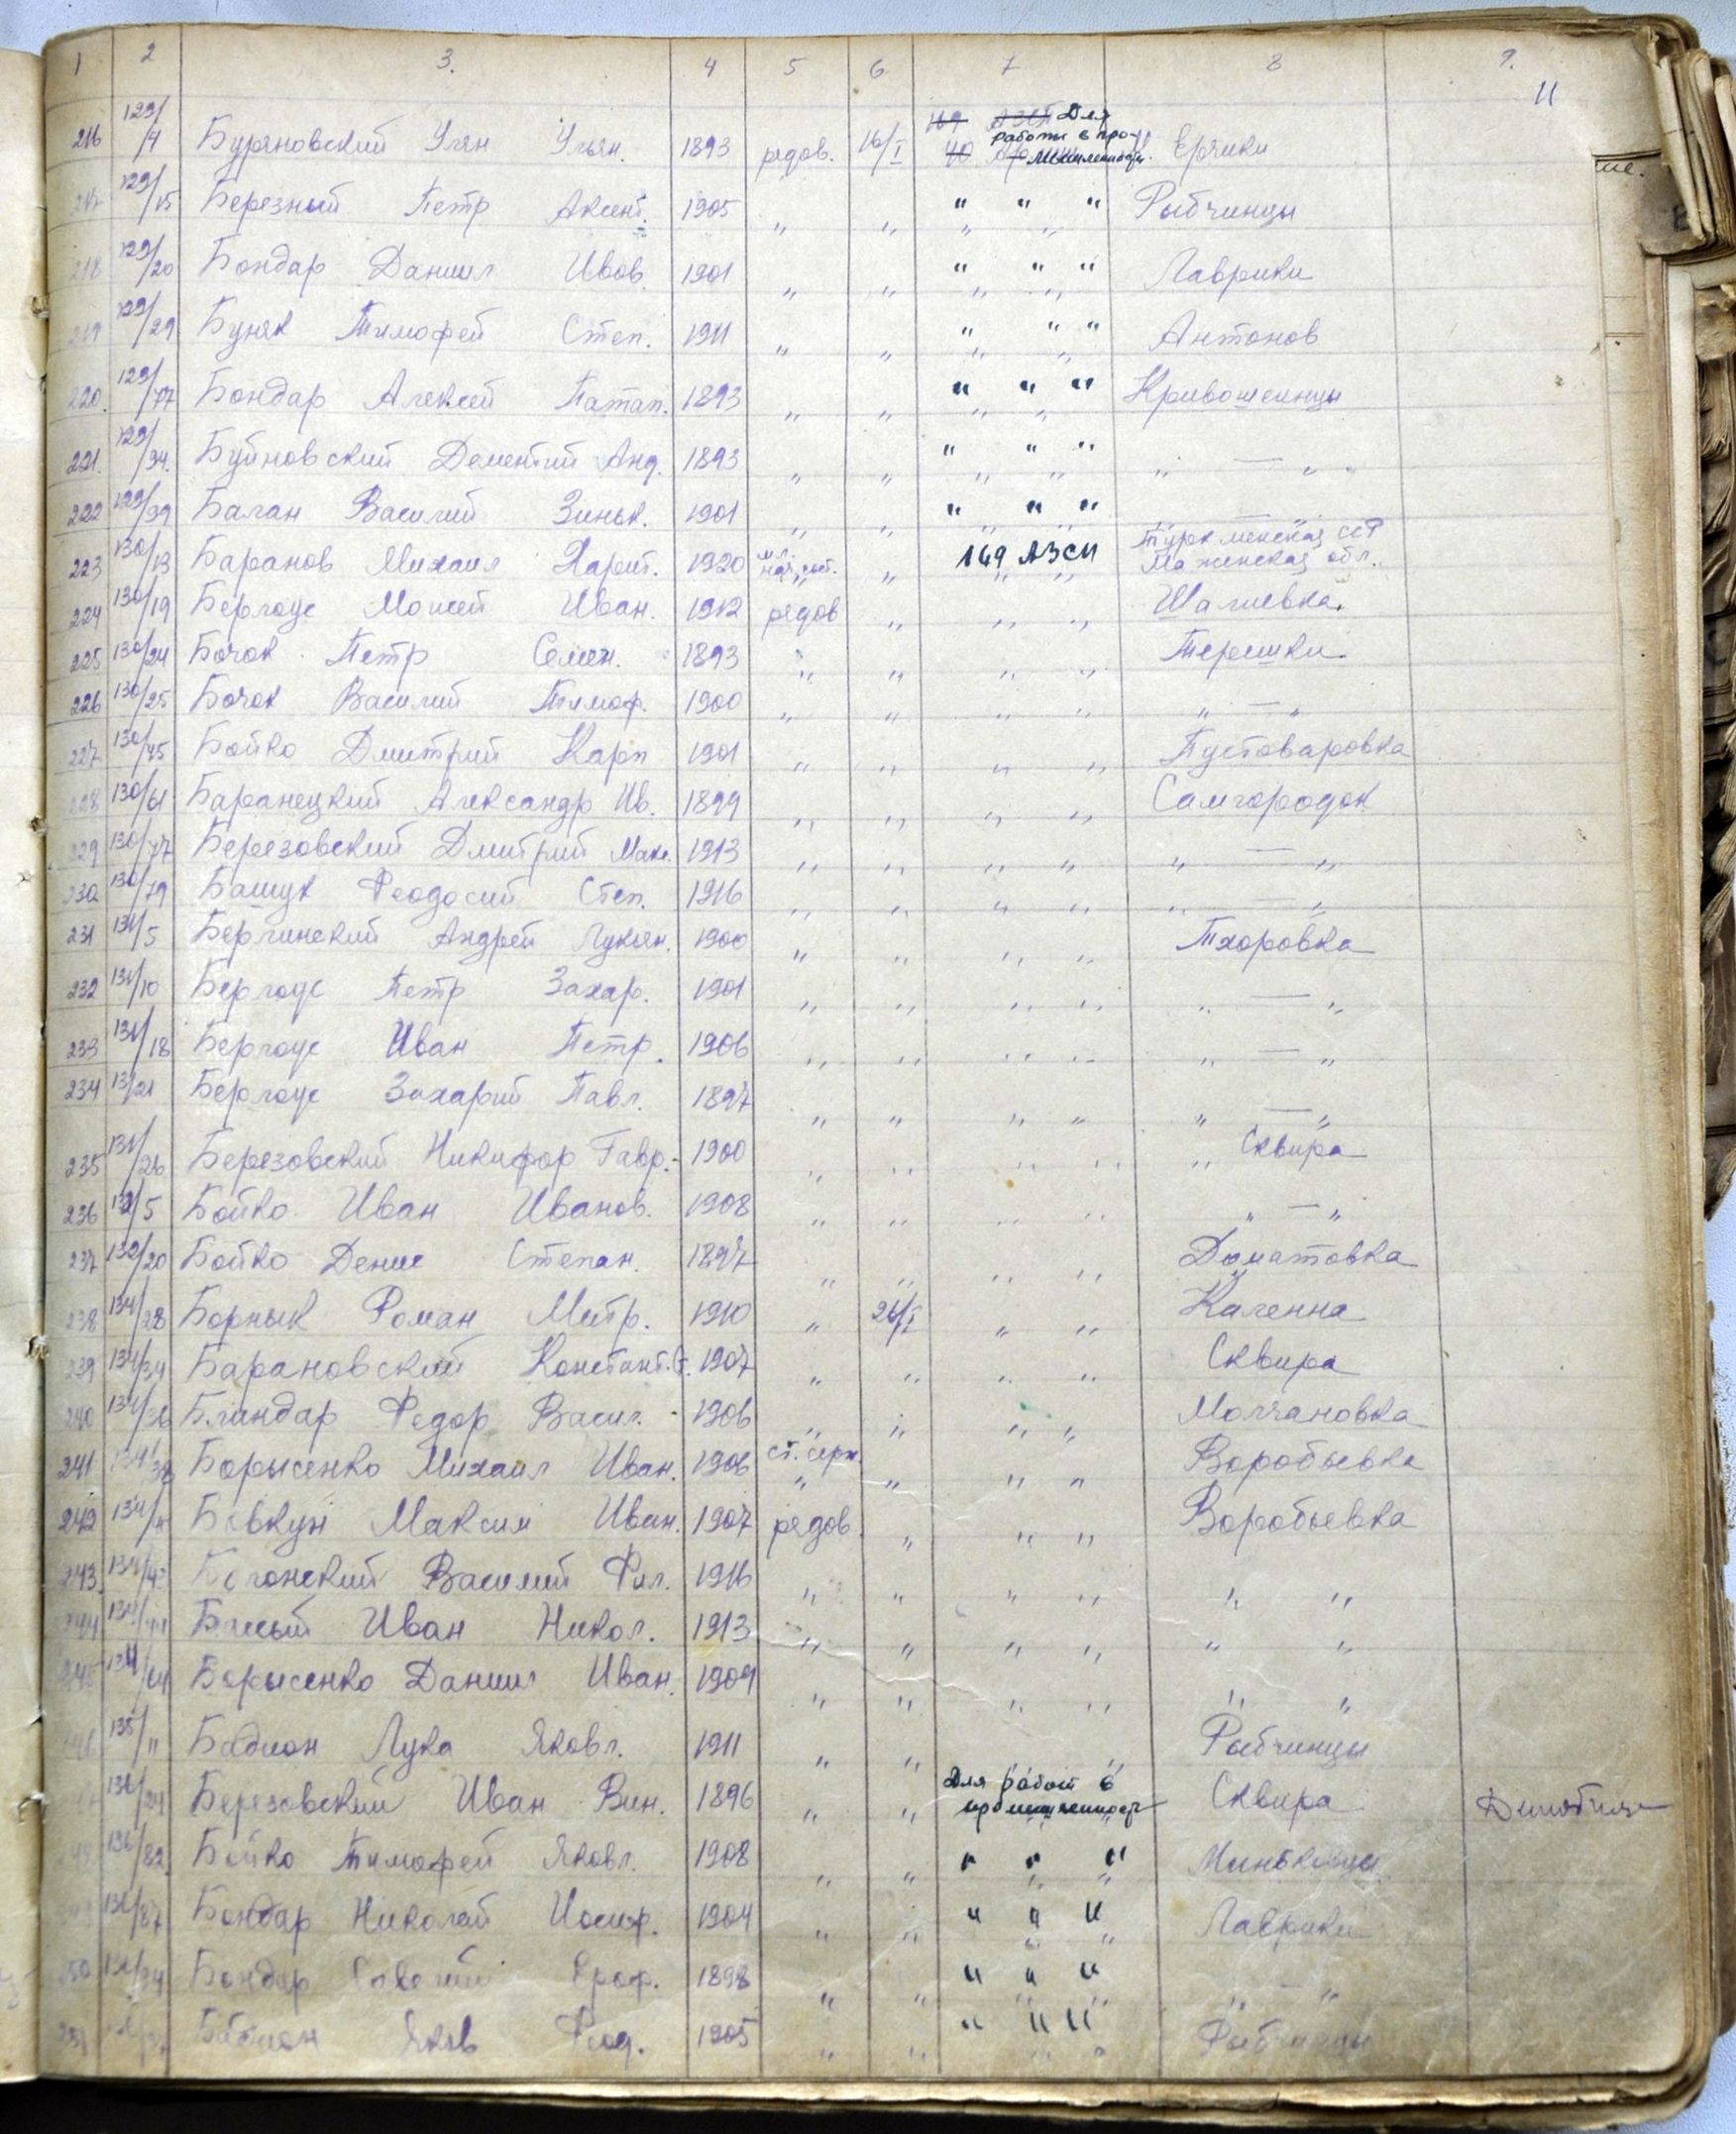 1 2 3. 4 5 6 7 8 9.
11
216 129/4 Буряновский Улян Ульян. 1893 рядов. 16/I Для работы в промышленность. Ерчики
217 129/15 Березный Петр Аксент. 1905 " " " " " Рыбчинцы
218 129/20 Бондар Даниил Ивов. 1901 " " " " " Лаврики
219 129/29 Буняк Тимофей Степ. 1911 " " " " " Антонов
220. 129/77 Бондар Алексей Патап. 1893 " " " " " Кривошеинцы
221. 129/94. Буйновский Дементий Анд. 1893 " " " " " " — "
222 129/99 Баган Василий Зиньк. 1901 " " " " " —
223 130/13 Баранов Михаил Харит. 1920 мл. нач. сост. " 169 АЗСП Туркменская ССР обл.
224 130/19 Берлоус Моисей Иван. 1912 рядов " " " Шалиевка.
225 130/24 Бочок Петр Семен. 1893 " " " " Терешки
226 130/25 Бочок Василий Тимоф. 1900 " " " " " — "
227 130/45 Бойко Дмитрий Карп 1901 " " " " Пустоваровка
228 130/61 Баранецкий Александр Ив. 1899 " " " " Самгородок
229 130/77 Березовский Дмитрий Макс. 1913 " " " " " — "
230 130/79 Башук Феодосий Степ. 1916 " " " " " — "
231 131/5 Берлинский Андрей Лукьян. 1900 " " " " Тхоровка
232 131/10 Берлоус Петр Захар. 1901 " " " " " — "
233 131/18 Берлоус Иван Петр. 1906 " " " " " — "
234 131/21 Берлоус Захарий Павл. 1897 " " " " " — "
235 131/26 Березовский Никифор Гавр. 1900 " " " " " Сквира
236 132/5 Бойко Иван Иванов. 1908 " " " " " — "
237 132/20 Бойко Денис Степан. 1897 " " " " Домантовка
238 134/28 Борнык Роман Митр. 1910 " 26/I " " Каленна
239 134/34 Барановский Константин. 1907 " " " " Сквира
240 134/36 Блиндар Федор Васил. 1906 " " " " Молчановка
241 134/38 Борысенко Михаил Иван. 1906 ст. серж. " " " Воробьевка
242 134/ Бовкун Максим Иван. 1907 рядов. " " " Воробьевка
243. 134/ Василий Фил. 1916 " " " " " "
244 134/ Иван Никол. 1913 " " " " " "
245 134/ Борысенко Даниил Иван. 1909 " " " " " "
135/11 Бадион Лука Яковл. 1911 " " " " Рыбчинцы
136/ Березовский Иван Вик. 1896 " " Для работ в промышленность Сквира
136/82 Бойко Тимофей Яковл. 1908 " " " " " Миньковцы
136/87 Бондар Николай Иосиф. 1904 " " " " " Лаврики
250 136/94 Бондар Савелий Ероф. 1898 " " " " " " — "
251 Бадион Яков Феод. 1905 " " " " " Рыбчинцы